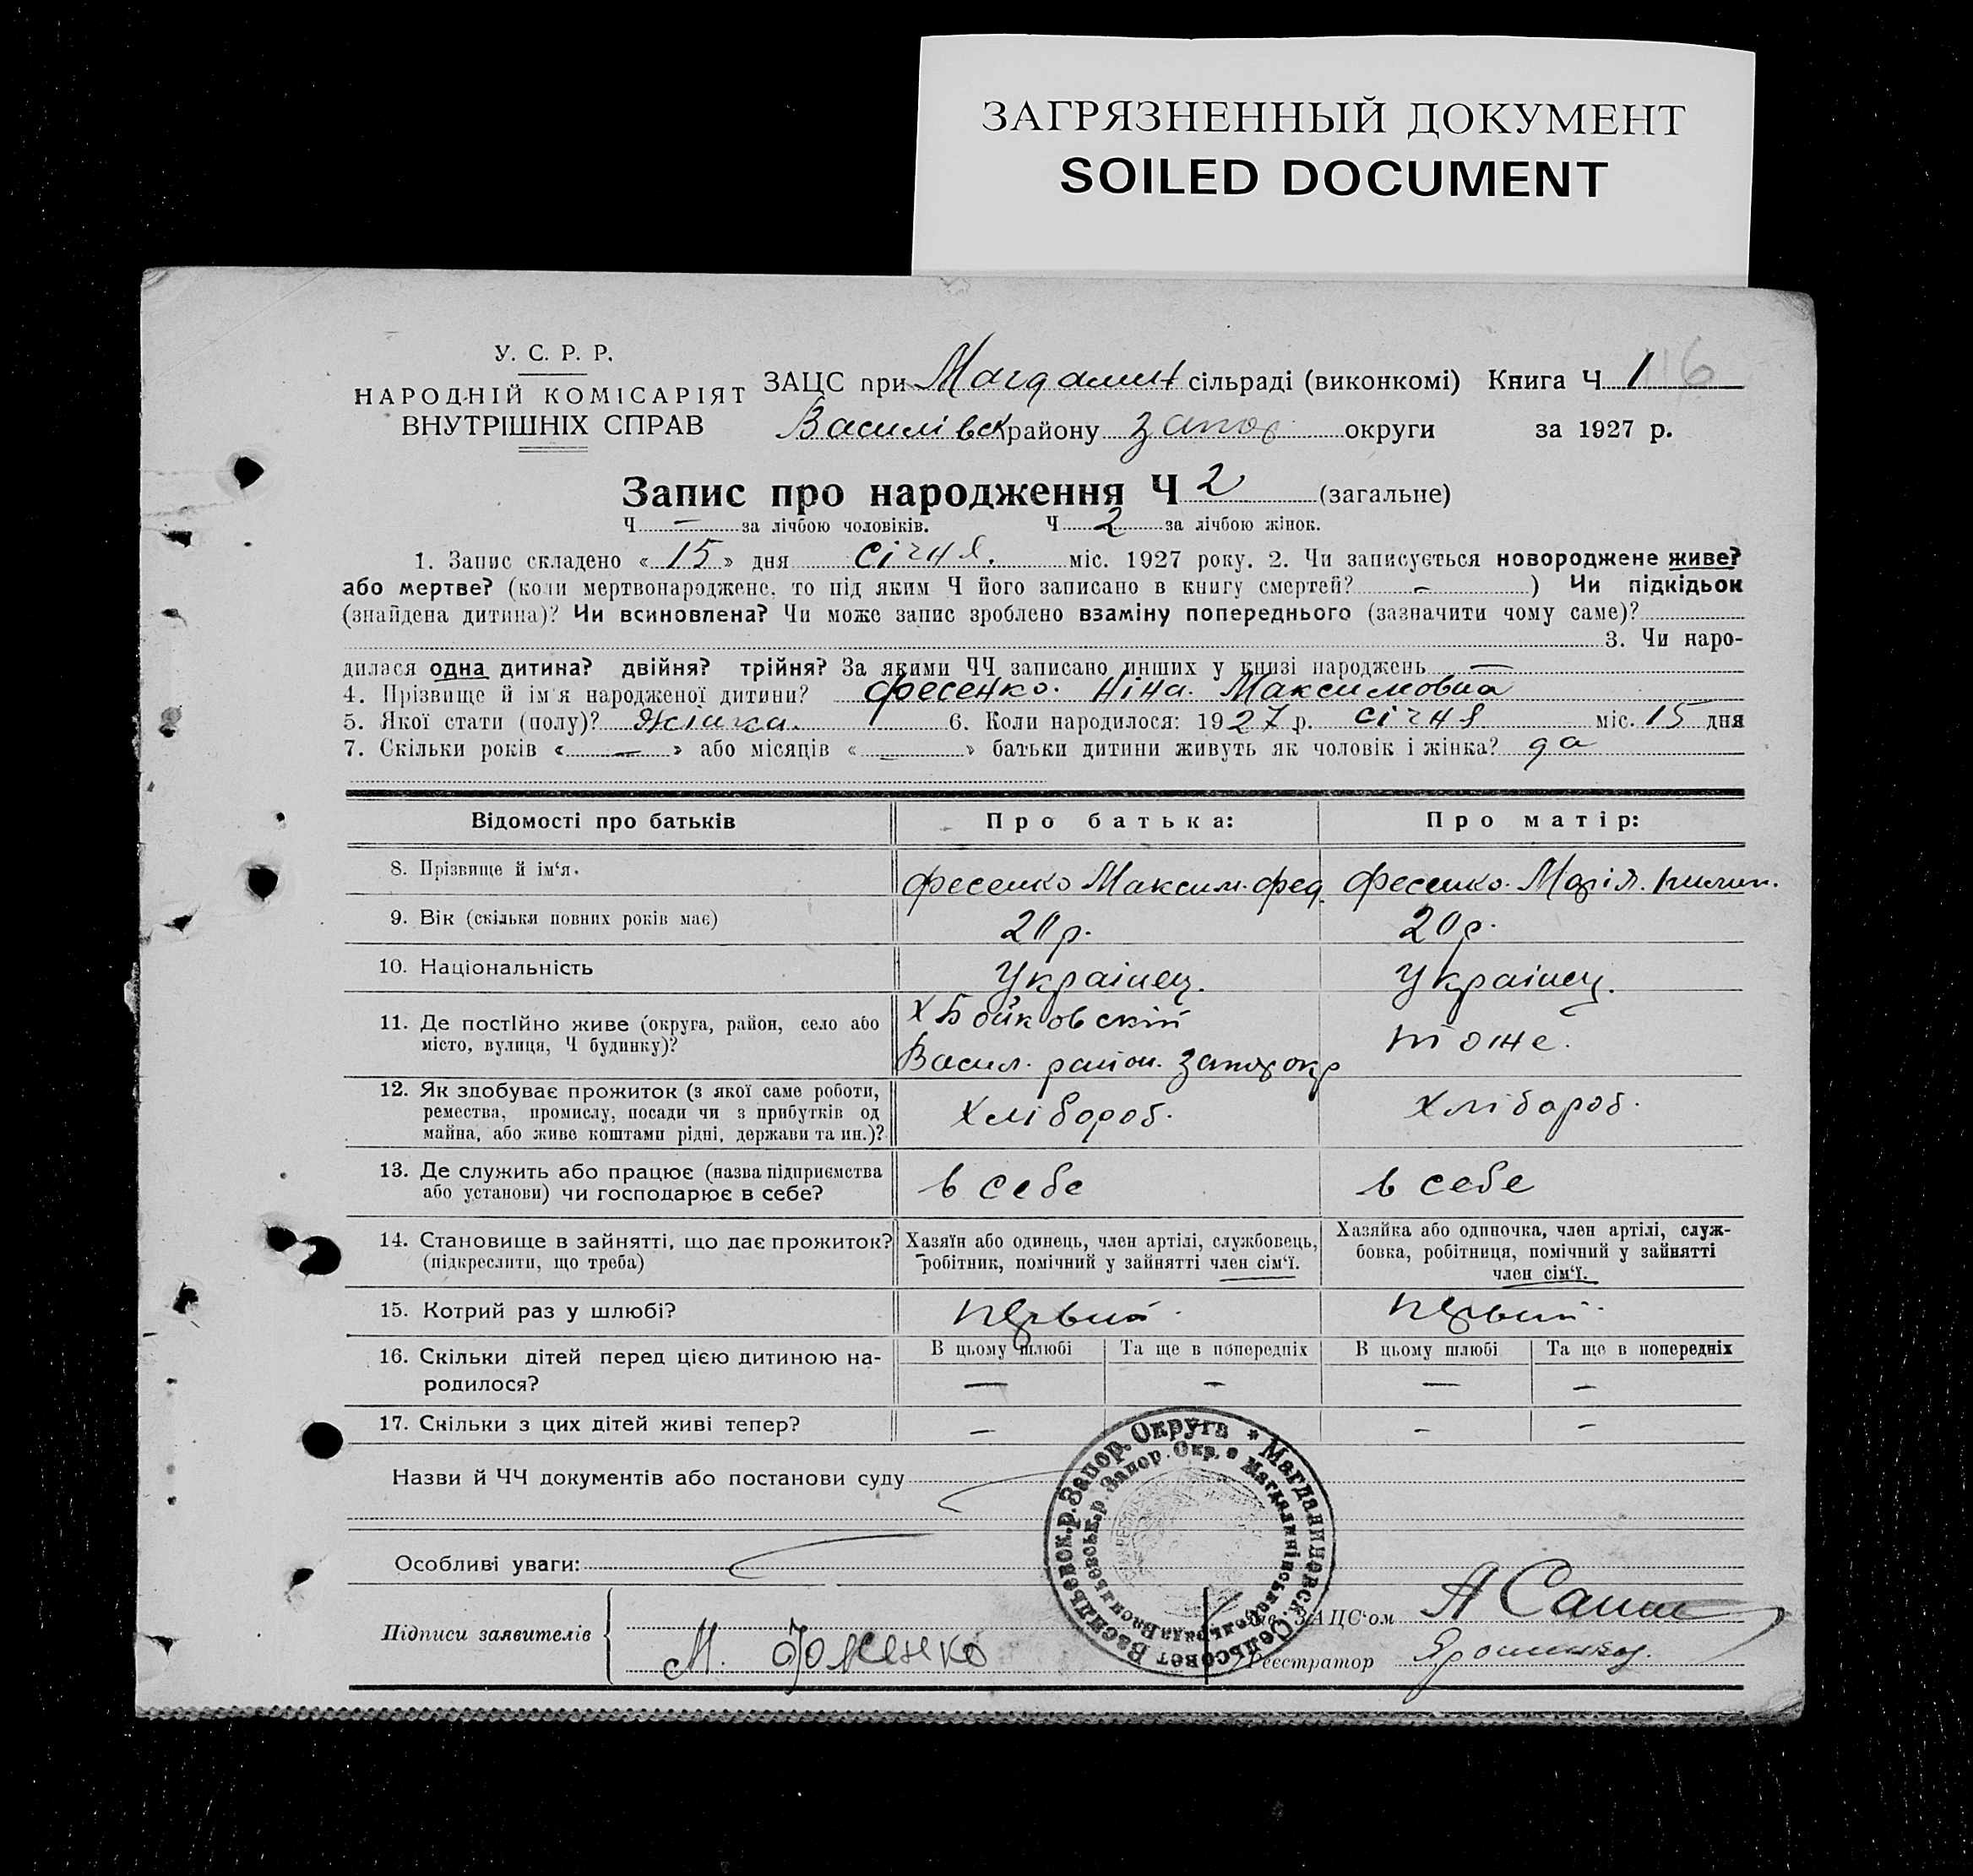 ЗАГРЯЗНЕННЫЙ ДОКУМЕНТ
SOILED DOCUMENT
У. С. Р. Р.
НАРОДНІЙ КОМІСАРІЯТ
ВНУТРІШНІХ СПРАВ
ЗАЦС при Магдалин сільраді (виконкомі) Книга Ч 1 116
Василівск району запор округи за 1927 р.
Запис про народження Ч 2 (загальне)
Ч — за лічбою чоловіків. Ч 2 за лічбою жінок.
1. Запис складено « 15 » дня січня. міс. 1927 року. 2. Чи записується новороджене живе?
або мертве? (коли мертвонароджене, то під яким Ч його записано в книгу смертей? — ) Чи підкідьок
(знайдена дитина)? Чи всиновлена? Чи може запис зроблено взаміну попереднього (зазначити чому саме)?
3. Чи наро-
дилася одна дитина? двійня? трійня? За якими ЧЧ записано инших у книзі народжень —
4. Прізвище й ім'я народженої дитини? Фесенко. Ніна. Максимовна
5. Якої стати (полу)? жінка. 6. Коли народилося: 1927 р. січня міс. 15 дня
7. Скільки років « — » або місяців « — » батьки дитини живуть як чоловік і жінка? да
Відомості про батьків Про батька: Про матір:
8. Прізвище й ім'я. Фесенко Максим. Фед. Фесенко. Марія.
9. Вік (скільки повних років має) 20 р. 20 р.
10. Національність Українец. Українец.
11. Де постійно живе (округа, район, село або
місто, вулиця, Ч будинку)?
Х Бойковскій
Васил. район. Запор окр
тоже.
12. Як здобуває прожиток (з якої саме роботи,
ремества, промислу, посади чи з прибутків од
майна, або живе коштами рідні, держави та ин.)?
Хлібороб. Хлібороб.
13. Де служить або працює (назва підприємства
або установи) чи господарює в себе?
в себе в себе
14. Становище в зайнятті, що дає прожиток?
(підкреслити, що треба)
Хазяїн або одинець, член артілі, службовець,
робітник, помічний у зайнятті член сім'ї.
Хазяйка або одиночка, член артілі, служ-
бовка, робітниця, помічний у зайнятті
член сім'ї.
15. Котрий раз у шлюбі? первий. первий.
16. Скільки дітей перед цією дитиною на-
родилося?
В цьому шлюбі Та ще в попередніх В цьому шлюбі Та ще в попередніх
— — — —
17. Скільки з цих дітей живі тепер? — — —
Назви й ЧЧ документів або постанови суду
Особливі уваги:
Васильевск.р.Запор.Округа * Магдалиновск.Сельсовет
Васильевськ.р.Запор.Окр. Магдалинівська Сільрада
Підписи заявителів М.
Зав. ЗАЦС'ом А
Реєстратор